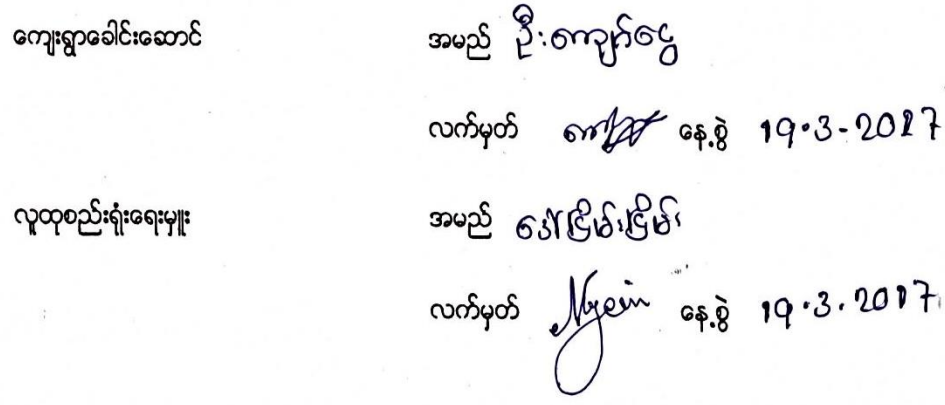 ကျေးရွာခေါင်းဆောင် အမည် ဦးကျော်ငွေ
လက်မှတ် နေ့စွဲ 19.3-2017
လူထုစည်းရုံးရေးမှူး အမည် ဒေါ်ငြိမ်းငြိမ်း
လက်မှတ် Nyein နေ့စွဲ 19.3.2017